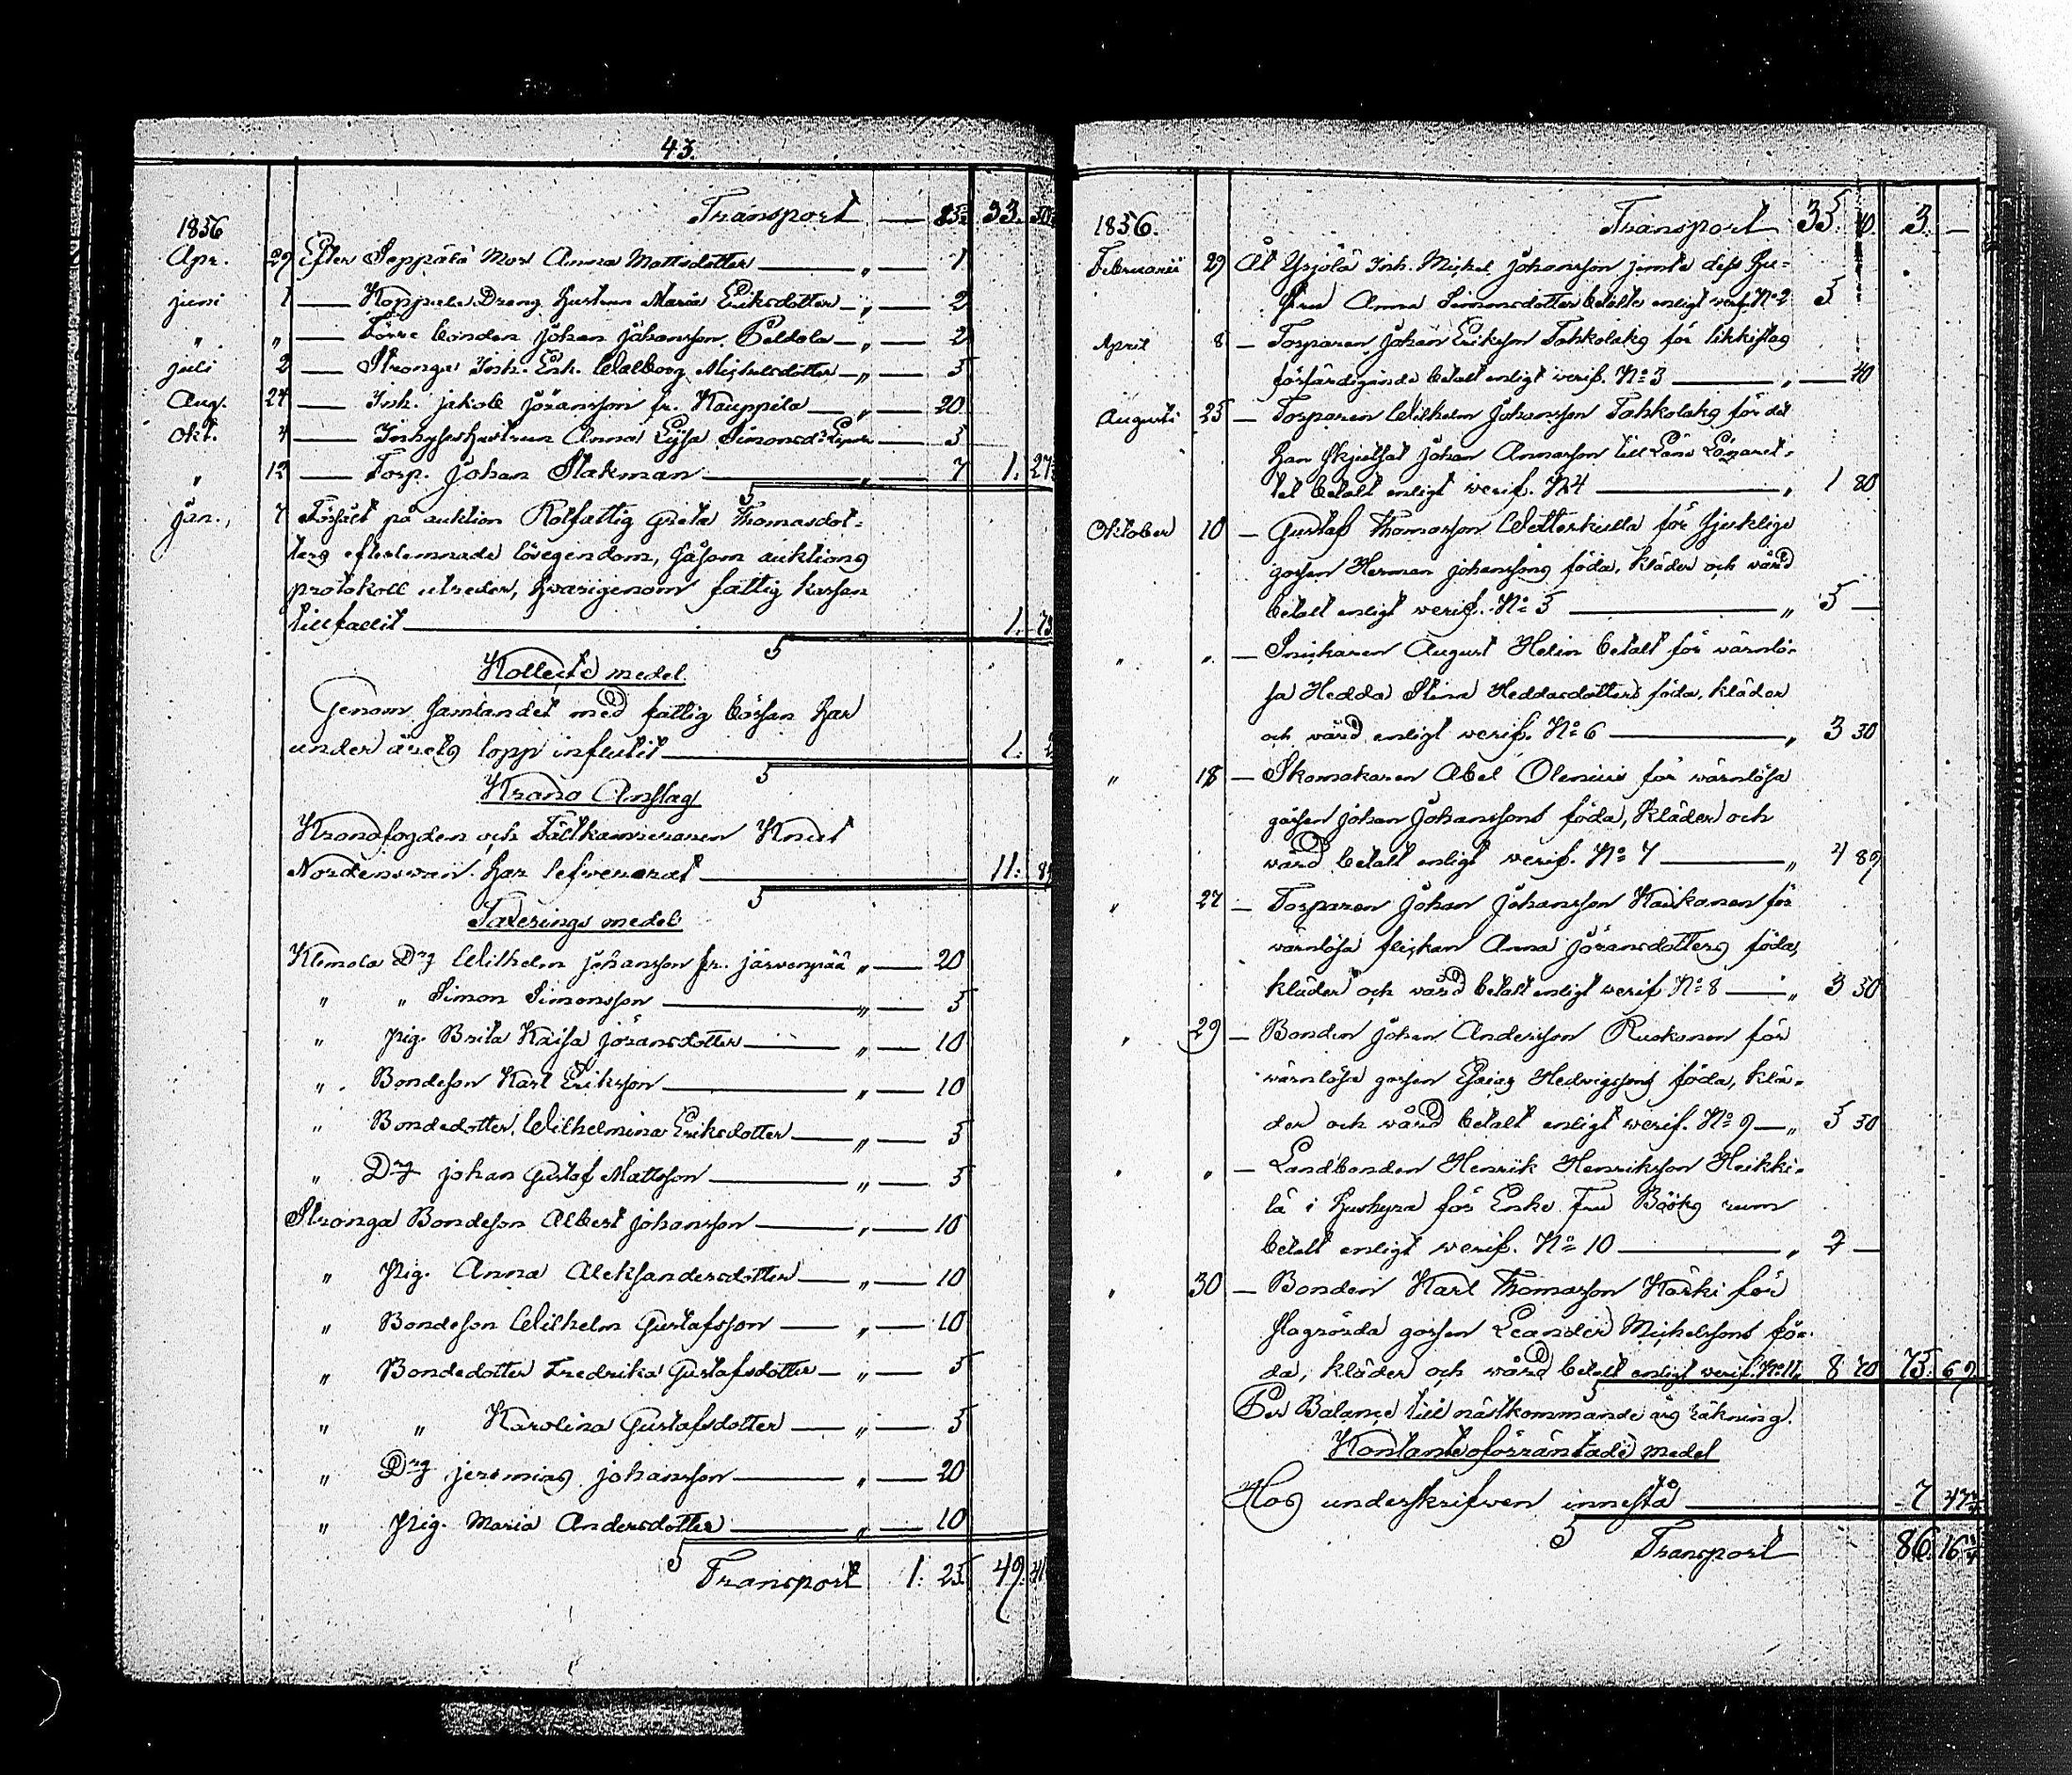 43.
Transport — 85. 33.
1856
Apr. 29 Efter Seppälä Mor Anna Mattsdotter — „ — 1
juni 1 — Koppala Dreng hustrun Maria Eriksdotter — „ — 2
„ „ — Förre bonden Johan Johansson Peldola — „ — 2
juli 2 — Stronga Inh. Enk. Walborg Michelsdotter — „ — 5
Aug. 24 — Inh. jakob Jöransson fr. Kauppila — „ — 20
Okt. 4 — Inhyses hustrun Anna Lijsa Simonsdr — 5
„ 12 — Torp. Johan Stakman — „ — 7 1. 27
Jan. 7 Försålt på auktion Rotfattig Greta Thomasdot-
ters efterlemnade lösegendom, såsom auktions
protokoll utreder, hwarigenom fattig kassan
tillfallit — 1. 75
Kollects medel.
Genom samlandet med fattig börsan har
under årets lopp influtit — 1.
Krono Anslag
Kronofogden och Fältkamreraren Knut
Nordenswan har lefwererat — 11:
Taxerings medel.
Klemola Drg Wilhelm Johansson fr. järvenpää „ — 20
„ „ Simon Simonsson — „ — 5
„ Pig. Brita Kaisa Jöransdotter — „ — 10
„ Bondeson Karl Eriksson — „ — 10
„ Bondedotter Wilhelmina Eriksdotter — „ — 5
„ Drg Johan Gustaf Mattsson — „ — 5
Stronga Bondeson Albert Johansson — „ — 10
„ Pig. Anna Aleksandersdotter — „ — 10
„ Bondeson Wilhelm Gustafsson — „ — 10
„ Bondedotter Fredrika Gustafsdotter — „ — 5
„ „ Karolina Gustafsdotter — „ — 5
„ Drg jeremias Johansson — „ — 20
„ Pig. Maria Andersdotter — „ — 10
Transport 1: 25. 49.
1856. Transport 35. 40. 3. —
Februarii 29 Åt Yrjölä Inh. Mickel Johansson jemte dess hu-
stru Anna Simonsdotter betalts enligt verif. No 2 5
April 8 — Torparen Johan Eriksson Tahkolaks för likkistas
förfärdigande betalt enligt verif. No 3 — „ — 40
Augusti 25 — Torparen Wilhelm Johansson Tahkolaks för det
han skjutsat Johan Annasson till Läns Lazaret-
tet betalt enligt verif. No 4 — „ 1 80
Oktober 10 — Gustaf Thomasson Wetterkulla för sjuklige
gossen Herman Johanssons föda, kläder och wård
betalt enligt werif. No 5 — „ 5 —
„ „ — Snickaren August Helin betalt för wärnlö-
sa Hedda Stina Heddasdotters föda, kläder
och wård enligt werif. No 6 — „ 3 30
„ 18 — Skomakaren Abel Olenius för wärnlösa
gossen Johan Johanssons föda, kläder och
wård betalt enligt werif. No 7 — „ 4 89
„ 27 — Torparen Johan Johansson Kaukonen för
wärnlösa flickan Anna Jöransdotters föda,
kläder och wård betalt enligt werif No 8 — „ 3 30
„ 29 — Bonden Johan Andersson Ruokonen för
wärnlösa gossen Esaias Hedvigssons föda, klä-
der och wård betalt enligt werif. No 9 — „ 5 30
„ „ — Landbonden Henrik Henriksson Heikki-
lä i hushyra för Enke Fru Bööks rum
betalt enligt werif. No 10 — „ 2 —
„ 30 — Bonden Karl Thomasson Kärki för
slagrörda gossen Leander Michelssons fö-
da, kläder och wård betalt enligt werif. No 11. 8 70 75. 69
Per Balance till nästkommande års räkning.
Kontante oförräntade medel
Hos underskrifwen innestå — 7 47
Transport 86. 16